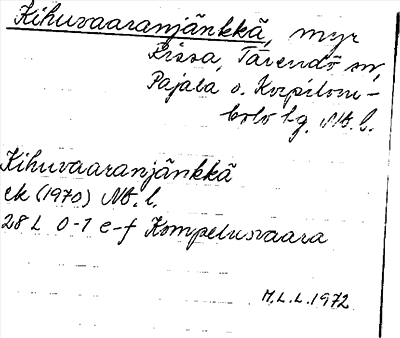 Kihuvaaranjänkkä, myr
Rissa, Tärendö sn,
Pajala o. Korpilom-
bolo tg. Nb. l.
Kihuvaaranjänkkä
ek (1970) Nb. l.
28 L 0-1 e-f Kompelusvaara
M.L.L. 1972